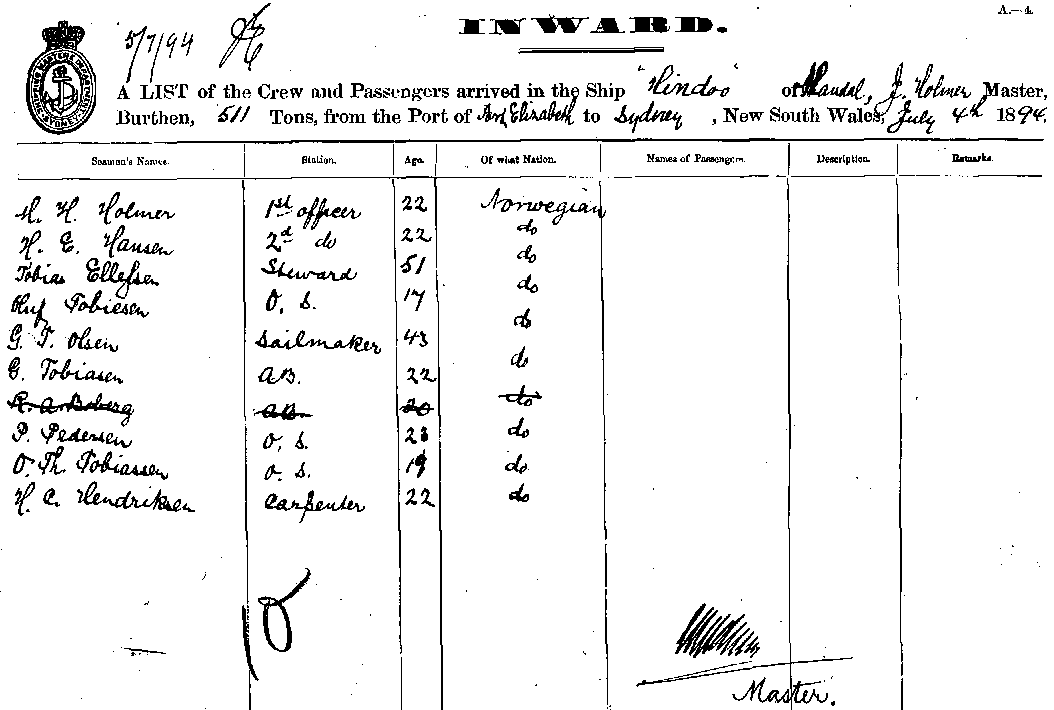 A.—4.
5/7/94
INWARD.
A LIST of the Crew and Passengers arrived in the Ship "Hindoo" of Mandal, J. Holmer Master,
Burthen, 511 Tons, from the Port of Port Elizabeth to Sydney, New South Wales, July 4th 1894.
Seaman's Names. Station. Age. Of what Nation. Names of Passengers. Description. Remarks.
H. H. Holmer 1st officer 22 Norwegian
H. E. Hansen 2d do 22 do
Tobias Ellefsen Steward 51 do
Oluf Tobiesen O. S. 17 do
G. T. Olsen Sailmaker 43 do
G. Tobiasen AB. 22 do
R. A. Boberg AB 20 do
P. Pedersen O. S. 23 do
O. Th. Tobiassen O. S. 19 do
H. C. Hendriksen Carpenter 22 do
10
Master.